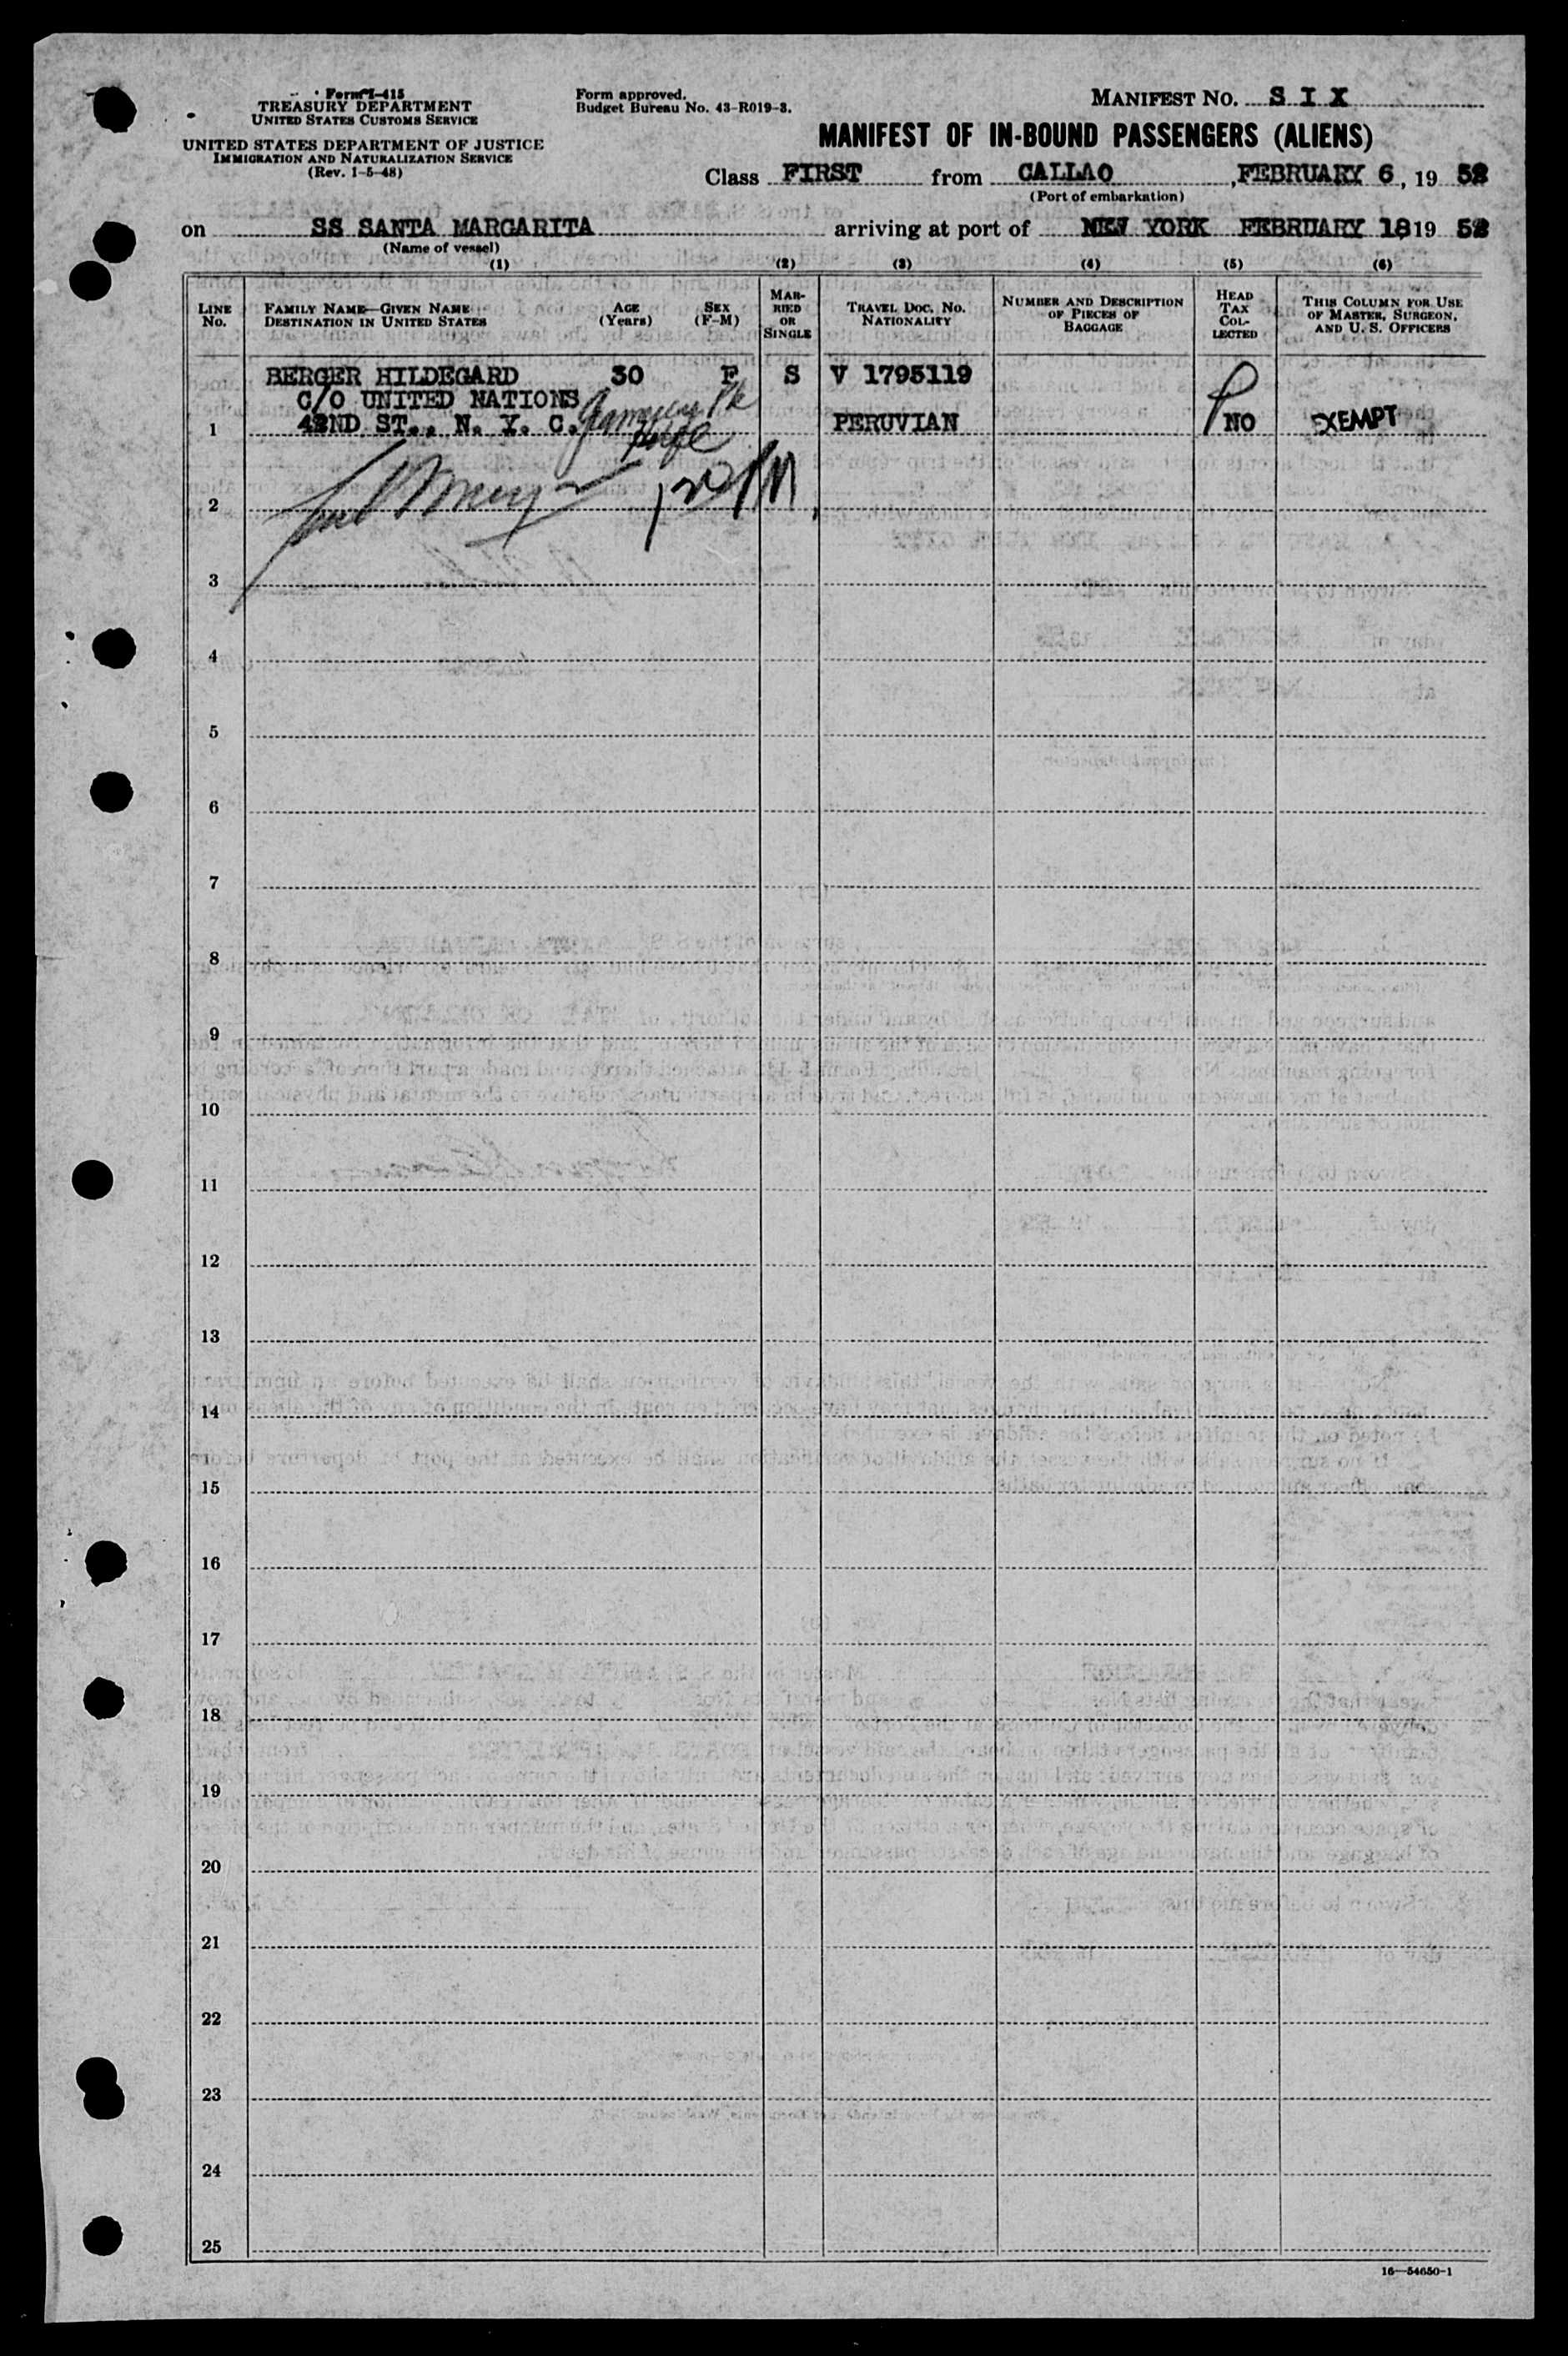 Form I-415
TREASURY DEPARTMENT
UNITED STATES CUSTOMS SERVICE
UNITED STATES DEPARTMENT OF JUSTICE
IMMIGRATION AND NATURALIZATION SERVICE
(Rev. 1-5-48)
Form approved.
Budget Bureau No. 43-R019-3.
MANIFEST NO. S I X
MANIFEST OF IN-BOUND PASSENGERS (ALIENS)
Class FIRST from CALLAO, FEBRUARY 6, 19 52
(Port of embarkation)
on SS SANTA MARGARITA arriving at port of NEW YORK FEBRUARY 18 19 52
(Name of vessel)
(1) (2) (3) (4) (5) (6)
LINE No. FAMILY NAME—GIVEN NAME DESTINATION IN UNITED STATES AGE (Years) SEX (F-M) MARRIED OR SINGLE TRAVEL DOC. NO. NATIONALITY NUMBER AND DESCRIPTION OF PIECES OF BAGGAGE HEAD TAX COLLECTED THIS COLUMN FOR USE OF MASTER, SURGEON, AND U. S. OFFICERS
BERGER HILDEGARD 30 F S V 1795119
C/O UNITED NATIONS
1 42ND ST., N. Y. C. Gramercy Pk PERUVIAN NO EXEMPT
Hotel
2
3
4
5
6
7
8
9
10
11
12
13
14
15
16
17
18
19
20
21
22
23
24
25
16—54650-1